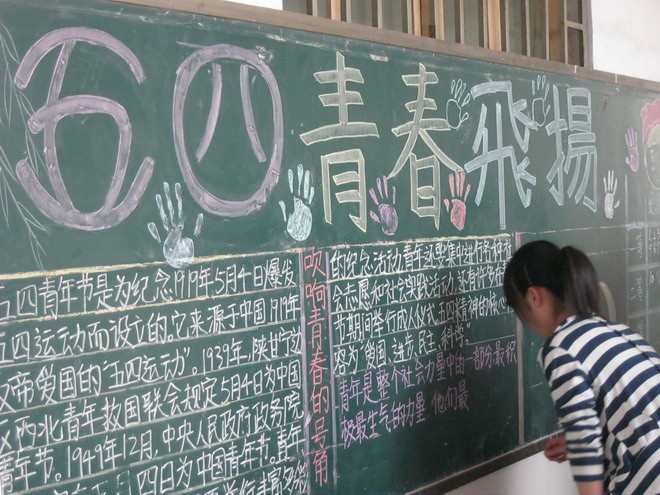 五四青春飛揚
五四青年节是为纪念1919年5月4日爆发
五四运动而设立的。它来源于中国1919年
反帝爱国的“五四运动”。1939年,陕甘宁边
区西北青年救国联合会规定5月4日为中国
青年节。1949年12月,中央人民政府政务院
四日为中国青年节。青年
吹响青春的号角
的纪念活动,青年
会志愿和社会实践活动
节期间举行成人仪式。五四精神的核心
容为“爱国、进步、民主、科学。”
青年是整个社会力量中的一部分最积
极最生气的力量 他们最